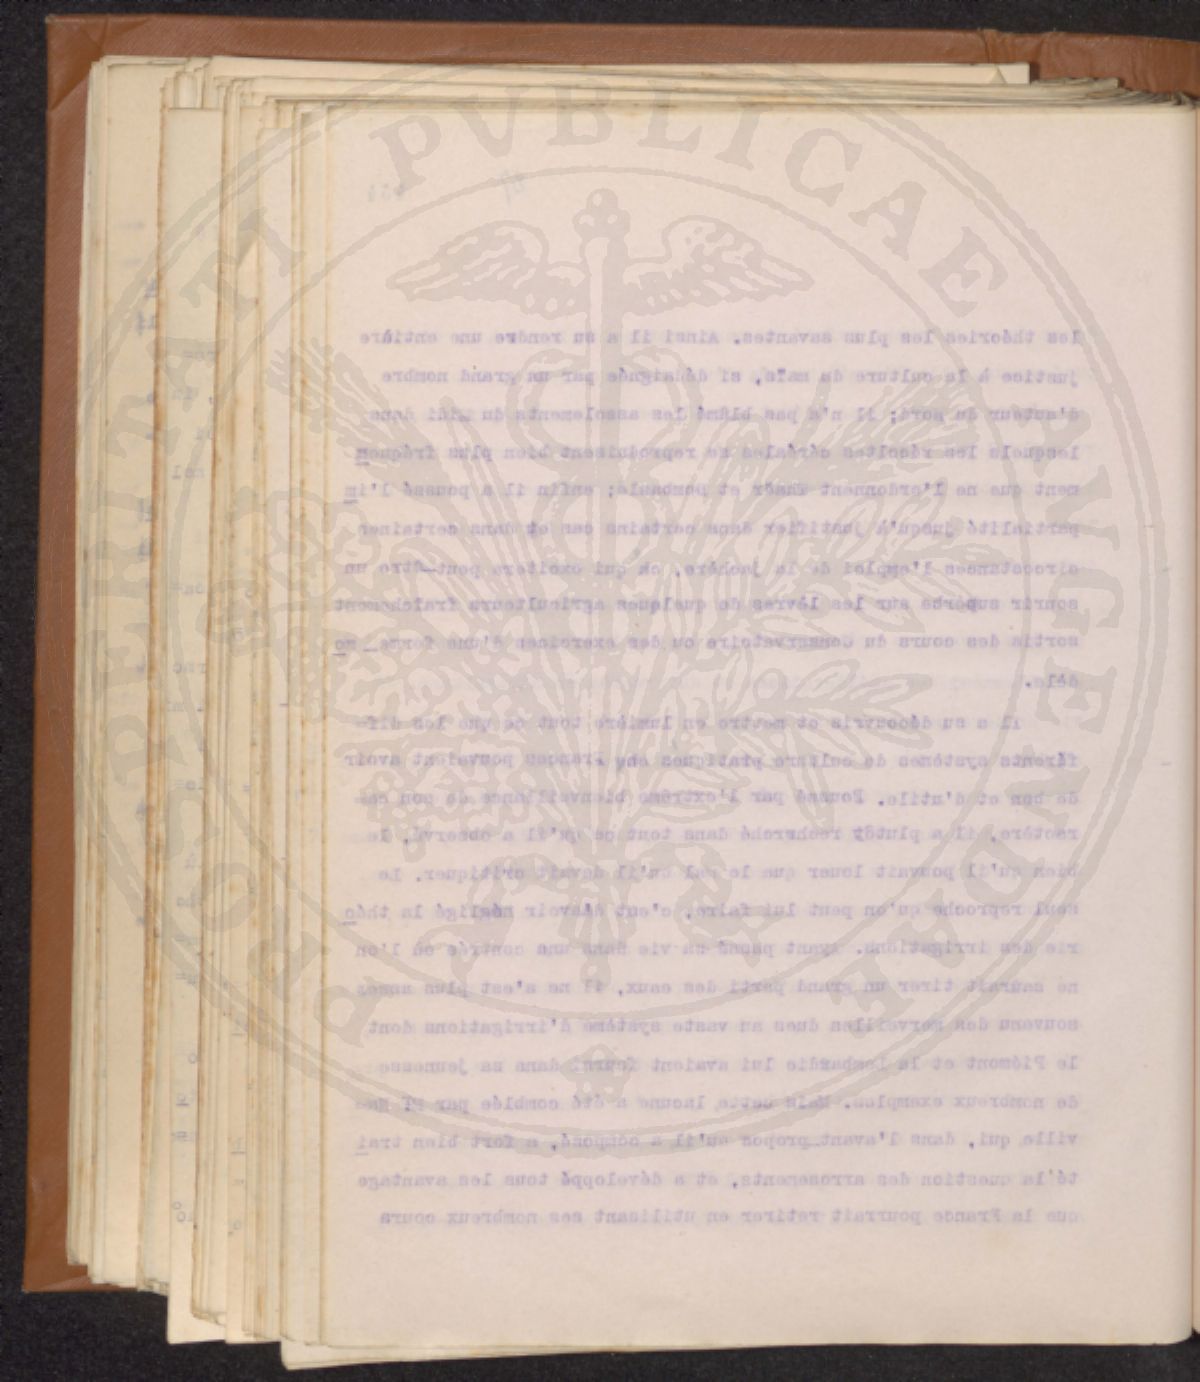 PROSPERITATI PVBLICAE AVGENDAE
les théories les plus savantes. Ainsi il a su rendre une entière
justice à la culture du maïs, si dédaignée par un grand nombre
d'auteur du nord; il n'a pas blâmé les assolements du midi dans
lesquels les récoltes céréales se reproduisent bien plus fréquem
ment que ne l'ordonnent Thaër et Dombasle; enfin il a poussé l'im
partialité jusqu'à justifier dans certains cas et dans certaines
circostances l'emploi de la jachère, ch qui exoitera peut-être un
sourir superbe sur les lèvres de quelques agriculteurs fraîchement
sortis des cours du Conservatoire ou des exercices d'une ferme mo
dèle.
Il a su découvrir et mettre en lumière tout ce que les dif-
férents systèmes de culture pratiques en France pouvaient avoir
de bon et d'utile. Poussé par l'extrême bienveillance de son ca-
ractère, il a plutôt recherché dans tout ce qu'il a observé, le
bien qu'il pouvait louer que le mal qu'il devait critiquer. Le
seul reproche qu'on peut lui faire, c'est d'avoir négligé la théo
rie des irrigations. Ayant passé sa vie dans une contrée où l'on
ne saurait tirer un grand parti des eaux, il ne s'est plus assez
souvenu des merveilles dues au vaste système d'irrigations dont
le Piémont et la Lombardie lui avaient fourni dans sa jeunesse
de nombreux exemples. Mais cette lacune a été comblée par
ville qui, dans l'avant-propos qu'il a composé, a fort bien trai
té la question des arrosements, et a développé tous les avantage
que la France pourrait retirer en utilisant ses nombreux cours